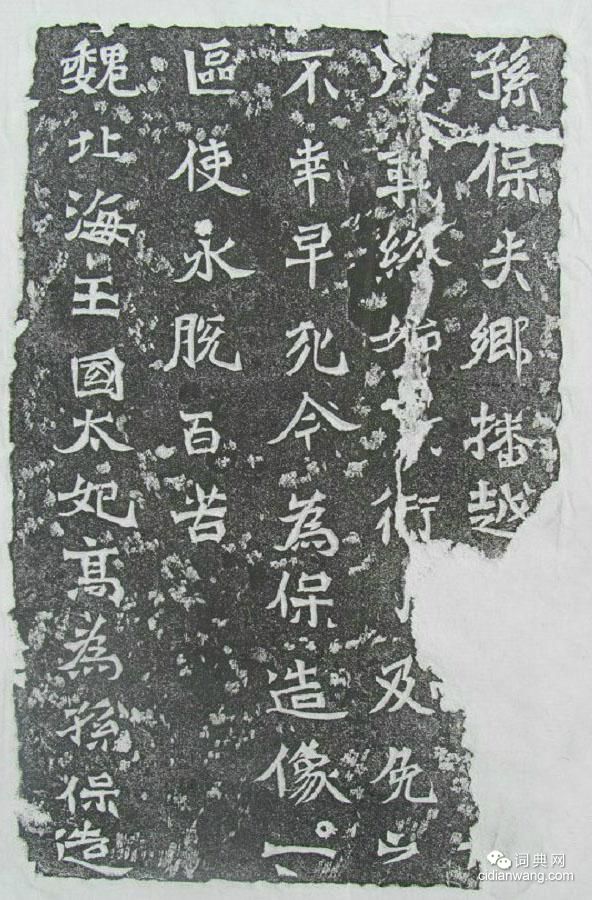 孫保失鄉播越
始 及免
不幸早死今為保造像一
區使永脫百苦
魏北海王國太妃高為孫保造
词典网
cidianwang.com